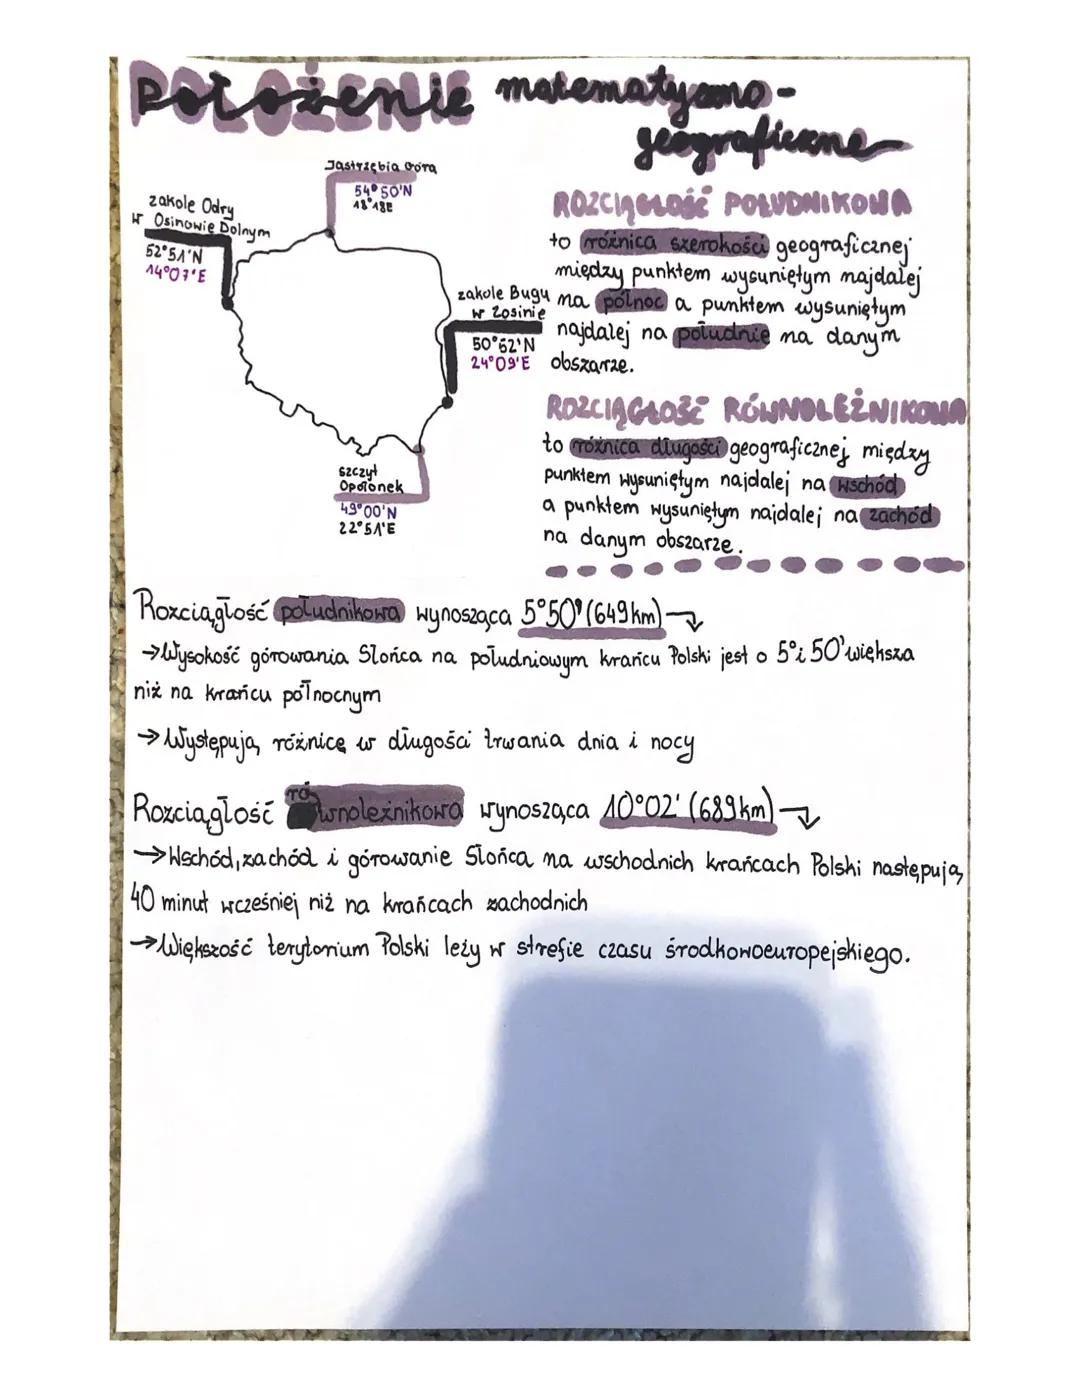 Położenie matematyczno-
geograficzne
Jastrzębia Góra
54°50'N
18°18E
zakole Odry
w Osinowie Dolnym
52°51'N
14°07'E
zakole Bugu
w Zosinie
50°52'N
24°09'E
szczyt
Opołonek
49°00'N
22°51'E
ROZCIĄGŁOŚĆ POŁUDNIKOWA
to różnica szerokości geograficznej
między punktem wysuniętym najdalej
na północ a punktem wysuniętym
najdalej na południe na danym
obszarze.
ROZCIĄGŁOŚĆ RÓWNOLEŻNIKOWA
to różnica długości geograficznej między
punktem wysuniętym najdalej na wschód
a punktem wysuniętym najdalej na zachód
na danym obszarze.
Rozciągłość południkowa wynosząca 5°50' (649km)
→Wysokość górowania Słońca na południowym krańcu Polski jest o 5°i 50' większa
niż na krańcu północnym
→Występują różnicę w długości trwania dnia i nocy
Rozciągłość równoleżnikowa wynosząca 10°02' (689km)
→Wschód, zachód i górowanie Słońca na wschodnich krańcach Polski następują
40 minut wcześniej niż na krańcach zachodnich
→Większość terytorium Polski leży w strefie czasu środkowoeuropejskiego.